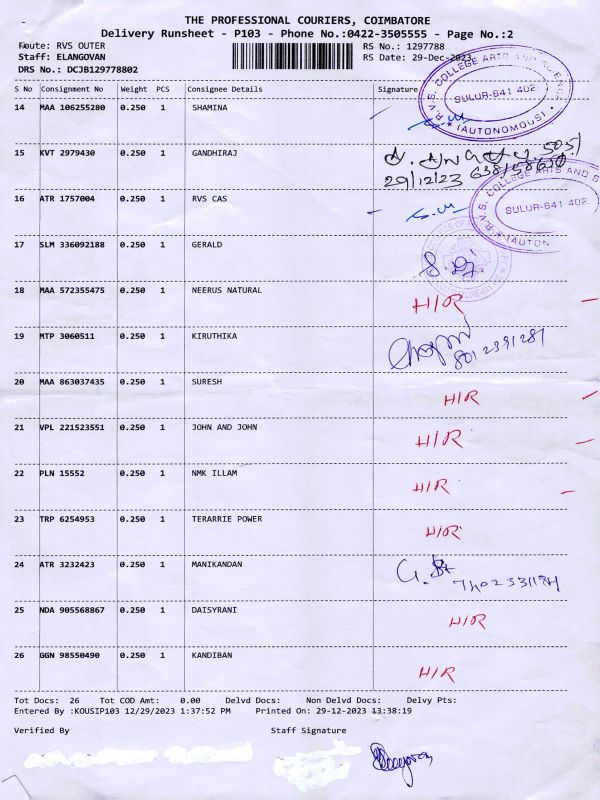 THE PROFESSIONAL COURIERS, COIMBATORE
Delivery Runsheet - P103 - Phone No.:0422-3505555 - Page No.:2
Route: RVS OUTER RS No.: 1297788
Staff: ELANGOVAN RS Date: 29-Dec-2023
DRS No.: DCJB129778802
S No Consignment No Weight PCS Consignee Details Signature
14 MAA 106255280 0.250 1 SHAMINA
R.V.S. COLLEGE ARTS AND SCIENCE
SULUR-641 402.
(AUTONOMOUS)
15 KVT 2979430 0.250 1 GANDHIRAJ
29/12/23
16 ATR 1757004 0.250 1 RVS CAS
R.V.S. COLLEGE ARTS AND S
SULUR-641 402.
(AUTON
17 SLM 336092188 0.250 1 GERALD
18 MAA 572355475 0.250 1 NEERUS NATURAL H/R
19 MTP 3060511 0.250 1 KIRUTHIKA
8012391287
20 MAA 863037435 0.250 1 SURESH H/R
21 VPL 221523551 0.250 1 JOHN AND JOHN H/R
22 PLN 15552 0.250 1 NMK ILLAM H/R
23 TRP 6254953 0.250 1 TERARRIE POWER H/R
24 ATR 3232423 0.250 1 MANIKANDAN
25 NDA 905568867 0.250 1 DAISYRANI H/R
26 GGN 98550490 0.250 1 KANDIBAN H/R
Tot Docs: 26 Tot COD Amt: 0.00 Delvd Docs: Non Delvd Docs: Delvy Pts:
Entered By :KOUSIP103 12/29/2023 1:37:52 PM Printed On: 29-12-2023 13:38:19
Verified By Staff Signature